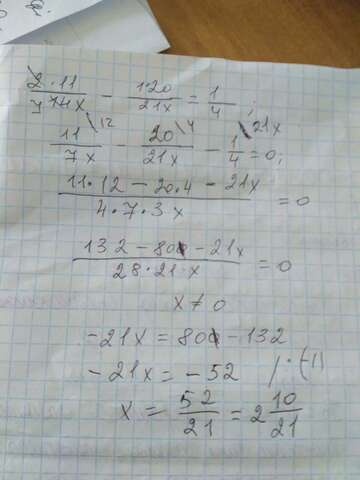 2·11/7 14x − 1·20/21x = 1/4 ;
11/7x \12 − 20/21x \4 − 1/4 \21x = 0;
11·12 − 20·4 − 21x / 4·7·3x = 0
132 − 80 − 21x / 28·21·x = 0
x ≠ 0
−21x = 80 − 132
−21x = −52 / ·(−1)
x = 52/21 = 2 10/21